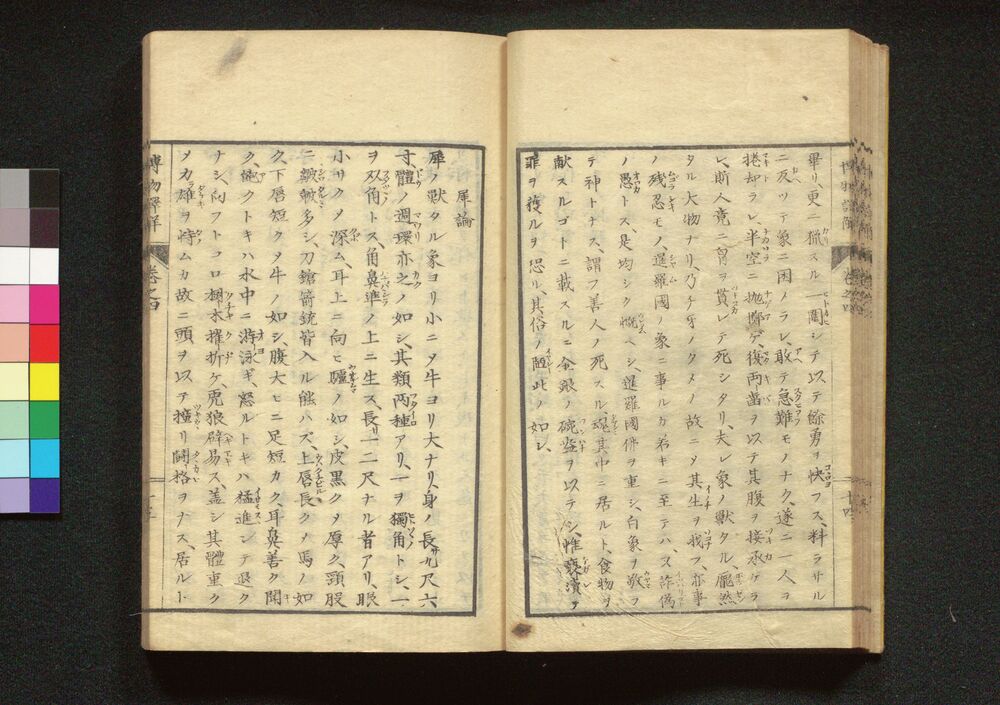 畢リ、更ニ猟スル一闘シテ以テ餘勇ヲ快フス、料ラサル
ニ反ツテ象ニ困メラレ、敢テ急難モノナク、遂ニ一人ヲ
捲却ラレ、半空ニ抛擲ゲ、復両齒ヲ以テ其腹ヲ接承ケラ
レ、斯人竟ニ胃ヲ貫レテ死シタリ、夫レ象ノ獣タル、龐然
タル大物ナリ、乃チ牙ノタメノ故ニ〆其生ヲ戕フ、亦事
ノ残忍モノ、暹羅國ノ象ニ事ルカ若キニ至テハ、詐偽
ノ愚トス、是均シク慨ヘシ、暹羅國佛ヲ重シ、白象ヲ敬フ
テ神トナス、謂フ善人ノ死スル魂其中ニ居ルト、食物ヲ
献スルゴトニ載スルニ金銀ノ碗盗ヲ以テシ、惟褻瀆テ
罪ヲ獲ルヲ恐ル、其俗ノ陋此ノ如シ、
犀論
犀ノ獣タル象ヨリ小ニ〆牛ヨリ大ナリ、身ノ長サ九尺六
寸、體ノ週環亦之ノ如シ、其類両種アリ、一ヲ獨角トシ、一
ヲ双角トス、角鼻準ノ上ニ生ス、長サ一二尺ナル者アリ、眼
小サク〆深ム、耳上ニ向ヒ驢ノ如シ、皮黒ク〆厚ク、頸股
ニ皺皴多シ、刀鎗箭銃皆入ル能ハズ、上唇長ク〆馬ノ如
ク、下唇短ク〆牛ノ如シ、腹大ヒニ足短カク、耳鼻善ク聞
ク、他クトキハ水中ニ游泳ギ、怒ルトキハ猛進ンテ退ク
ナシ、向フトコロ樹木摧折ケ、兕狼辟易ス、盖シ其體重ク
〆カ雄ヲ恃ムカ故ニ頭ヲ以テ撞リ闘格ヲナス、居ルト
博物解
巻之四